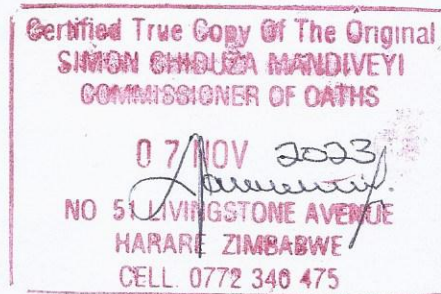 Certified True Copy Of The Original
SIMON CHIDUZA MANDIVEYI
COMMISSIONER OF OATHS
07 NOV 2023
NO 51 LIVINGSTONE AVENUE
HARARE ZIMBABWE
CELL. 0772 346 475